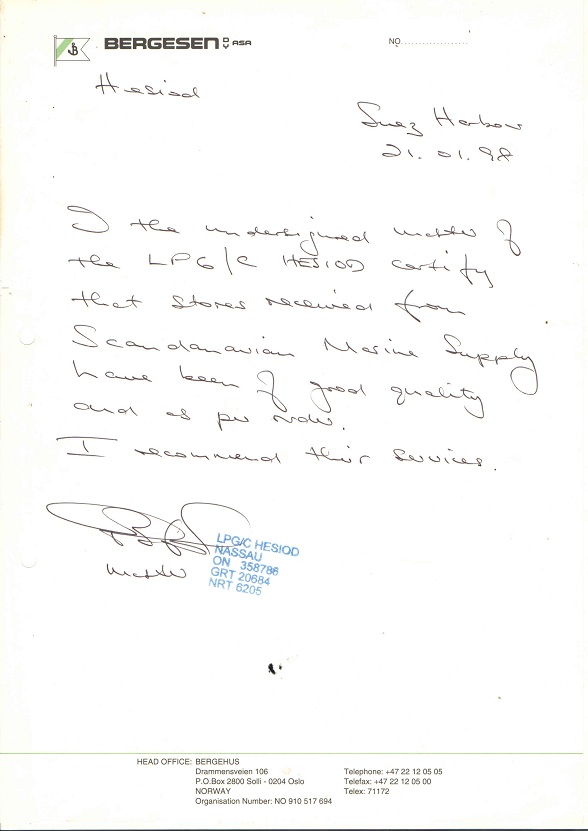 BERGESEN D.Y. ASA
NO...................
Hesiod
Suez Harbour
21.01.98
I the undersigned master of
the LPG/C HESIOD certify
that stores received from
Scandanavian Marine Supply
have been of good quality
and as per order.
I recommend their services.
Master
LPG/C HESIOD
NASSAU
ON 358786
GRT 20684
NRT 6205
HEAD OFFICE: BERGEHUS
Drammensveien 106 Telephone: +47 22 12 05 05
P.O.Box 2800 Solli - 0204 Oslo Telefax: +47 22 12 05 00
NORWAY Telex: 71172
Organisation Number: NO 910 517 694